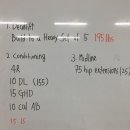 1. Deadlift
Build to a Heavy Set of 5 195 lbs
2. Conditioning
4R
10 DL (155)
15 GHD
10 cal AB
15:15
3. Midline
75 hip extensions (25)